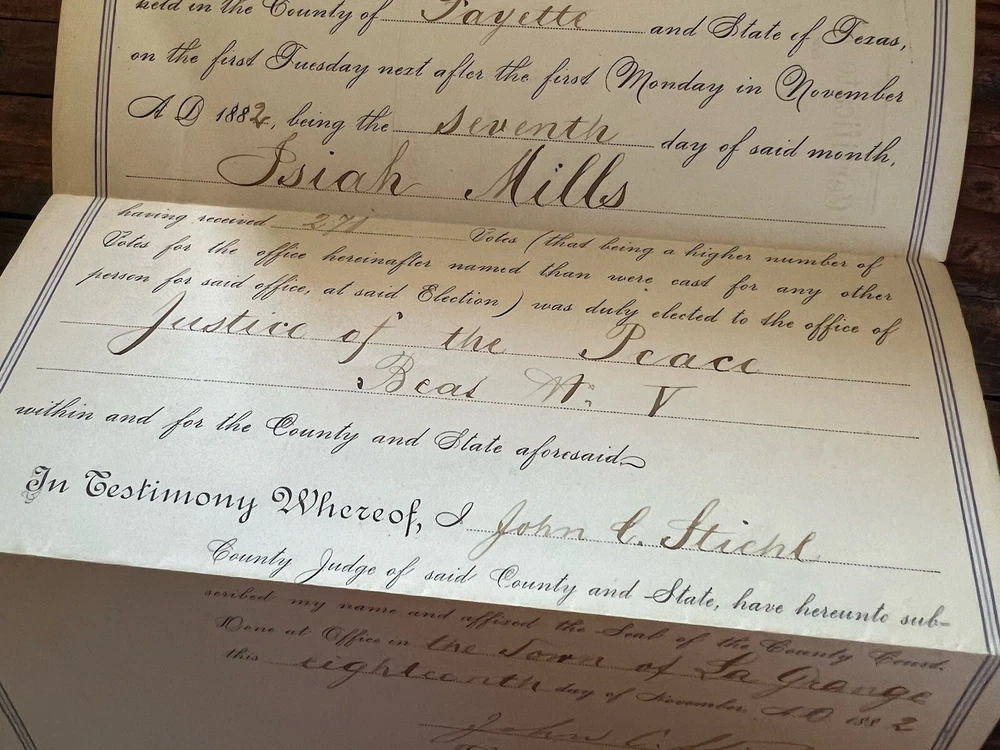 held in the County of Fayette and State of Texas,
on the first Tuesday next after the first Monday in November
A D 1882, being the seventh day of said month,
Isiah Mills
having received 271 Votes (that being a higher number of
Votes for the office hereinafter named than were cast for any other
person for said office, at said Election) was duly elected to the office of
Justice of the Peace
Beat No. V
within and for the County and State aforesaid
In Testimony Whereof, I John C. Stiehl
County Judge of said County and State, have hereunto sub-
scribed my name and affixed the Seal of the County Court.
Done at Office in the Town of La Grange
this eighteenth day of November, A.D. 1882
John C.